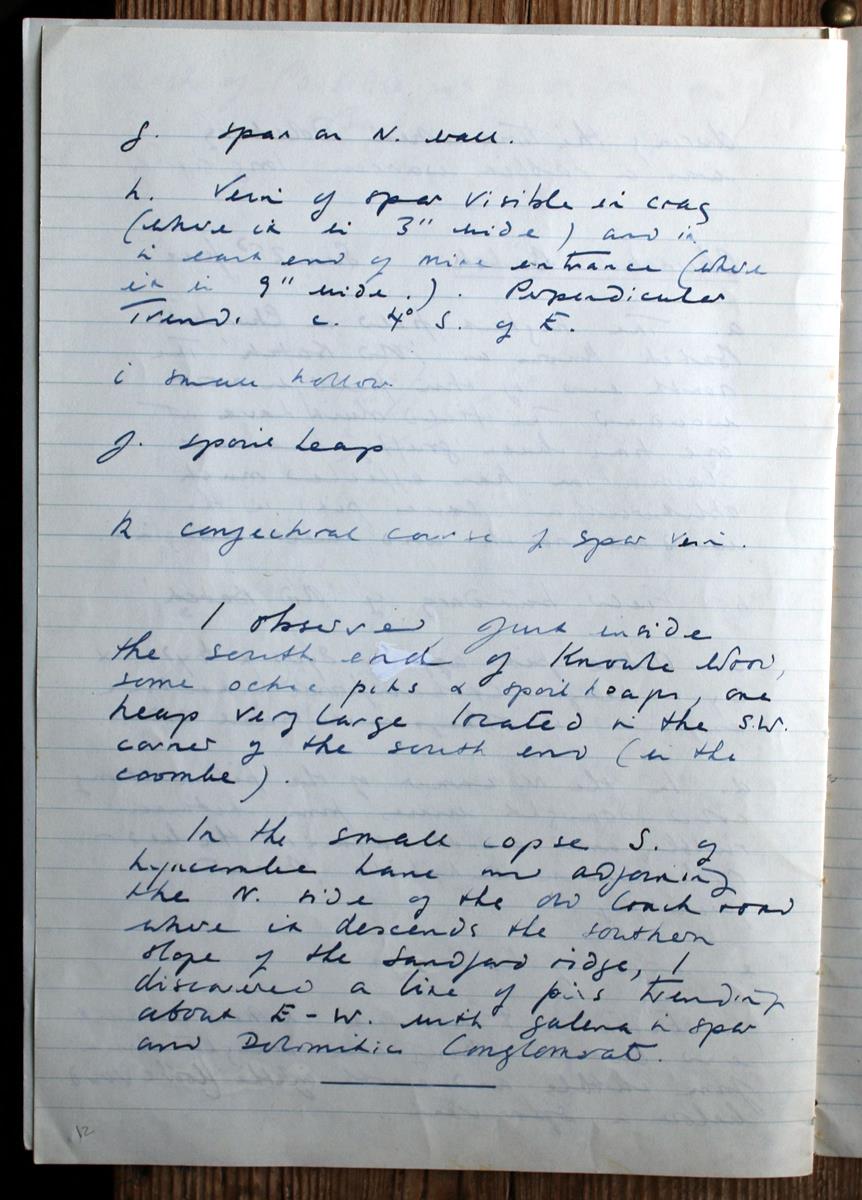 g. spar on N. wall.
h. Vein of spar visible in crag
(where it is 3" wide) and in
in east end of mine entrance (where
it is 9" wide.). Perpendicular
Trend. c. 4° S. of E.
i small hollow
j. spoil heap
k conjectural course of spar vein.
I observed, just inside
the south end of Knowle Wood,
some ochre pits & spoil heaps, one
heap very large located in the S.W.
corner of the south end (in the
coombe).
In the small copse S. of
Lyncombe Lane and adjoining
the N. side of the old Coach road
where it descends the southern
slope of the Sandford ridge, I
discovered a line of pits trending
about E-W. with galena in spar
and Dolomitic Conglomerate.
12